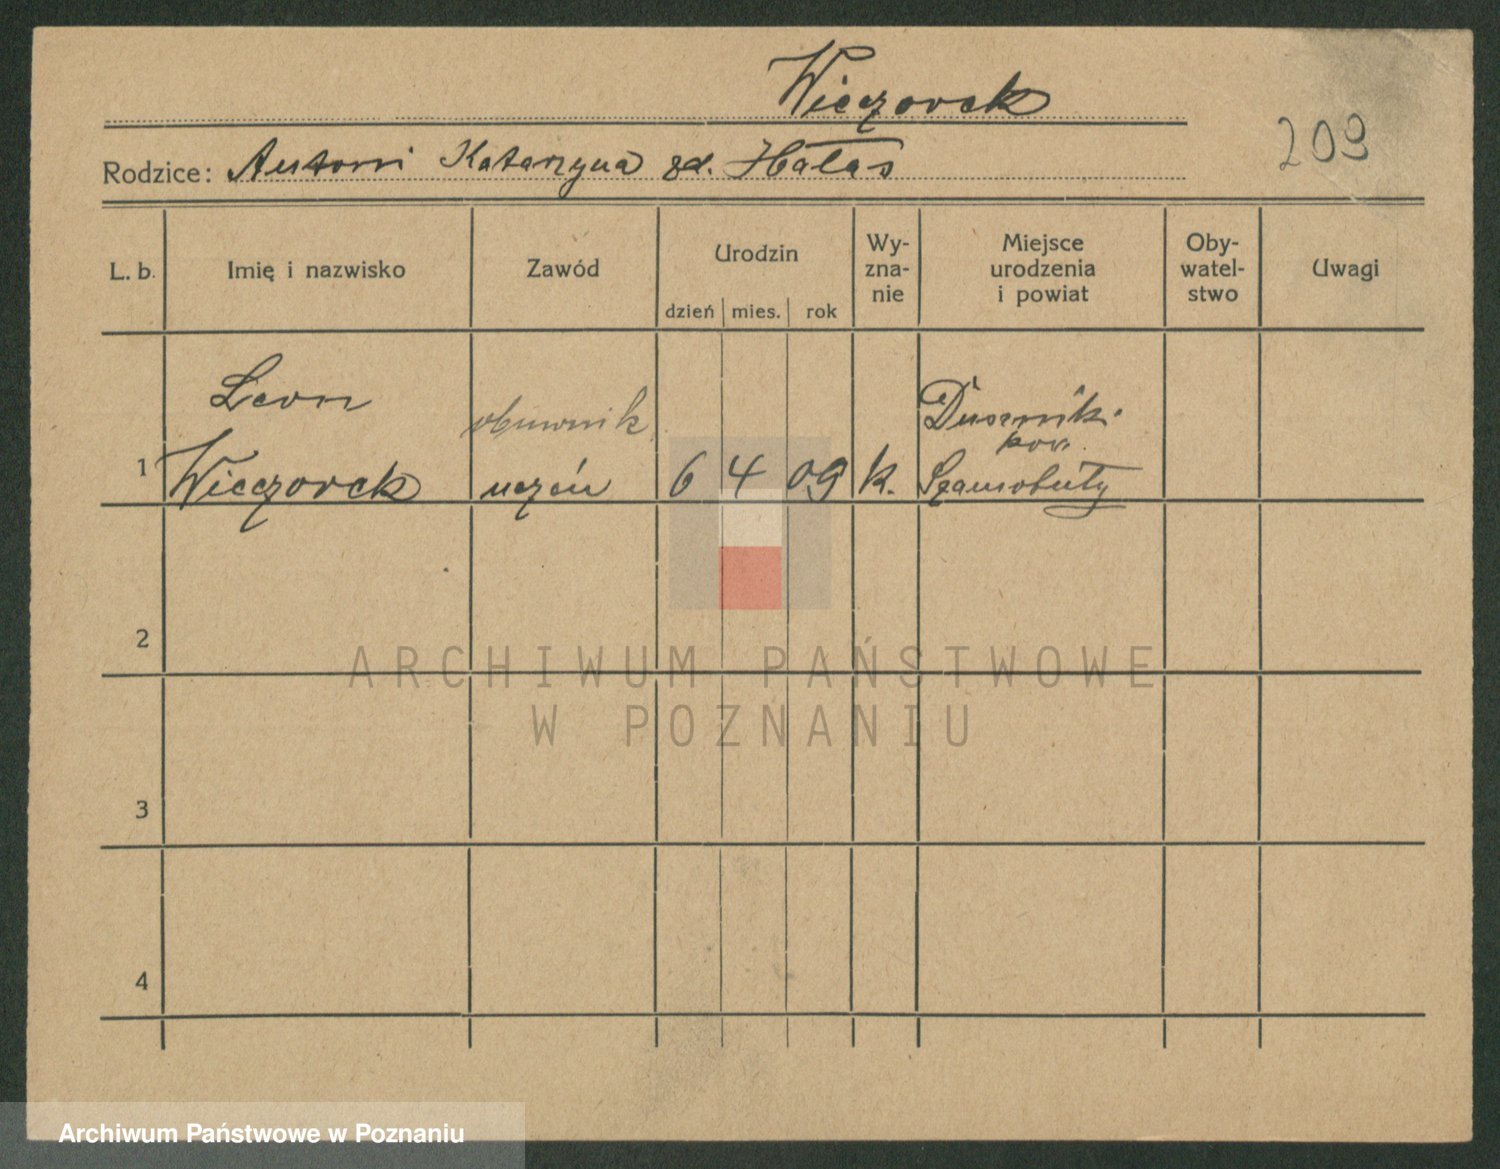 Wieczorek
209
Rodzice: Antoni Katarzyna zd. Hałas
L. b. Imię i nazwisko Zawód Urodzin Wy-zna-nie Miejsce urodzenia i powiat Oby-watel-stwo Uwagi
dzień mies. rok
Leon obuwnik Duszniki
pow.
1 Wieczorek uczeń 6 4 09 k. Szamotuły
2
ARCHIWUM PAŃSTWOWE
W POZNANIU
3
4
Archiwum Państwowe w Poznaniu